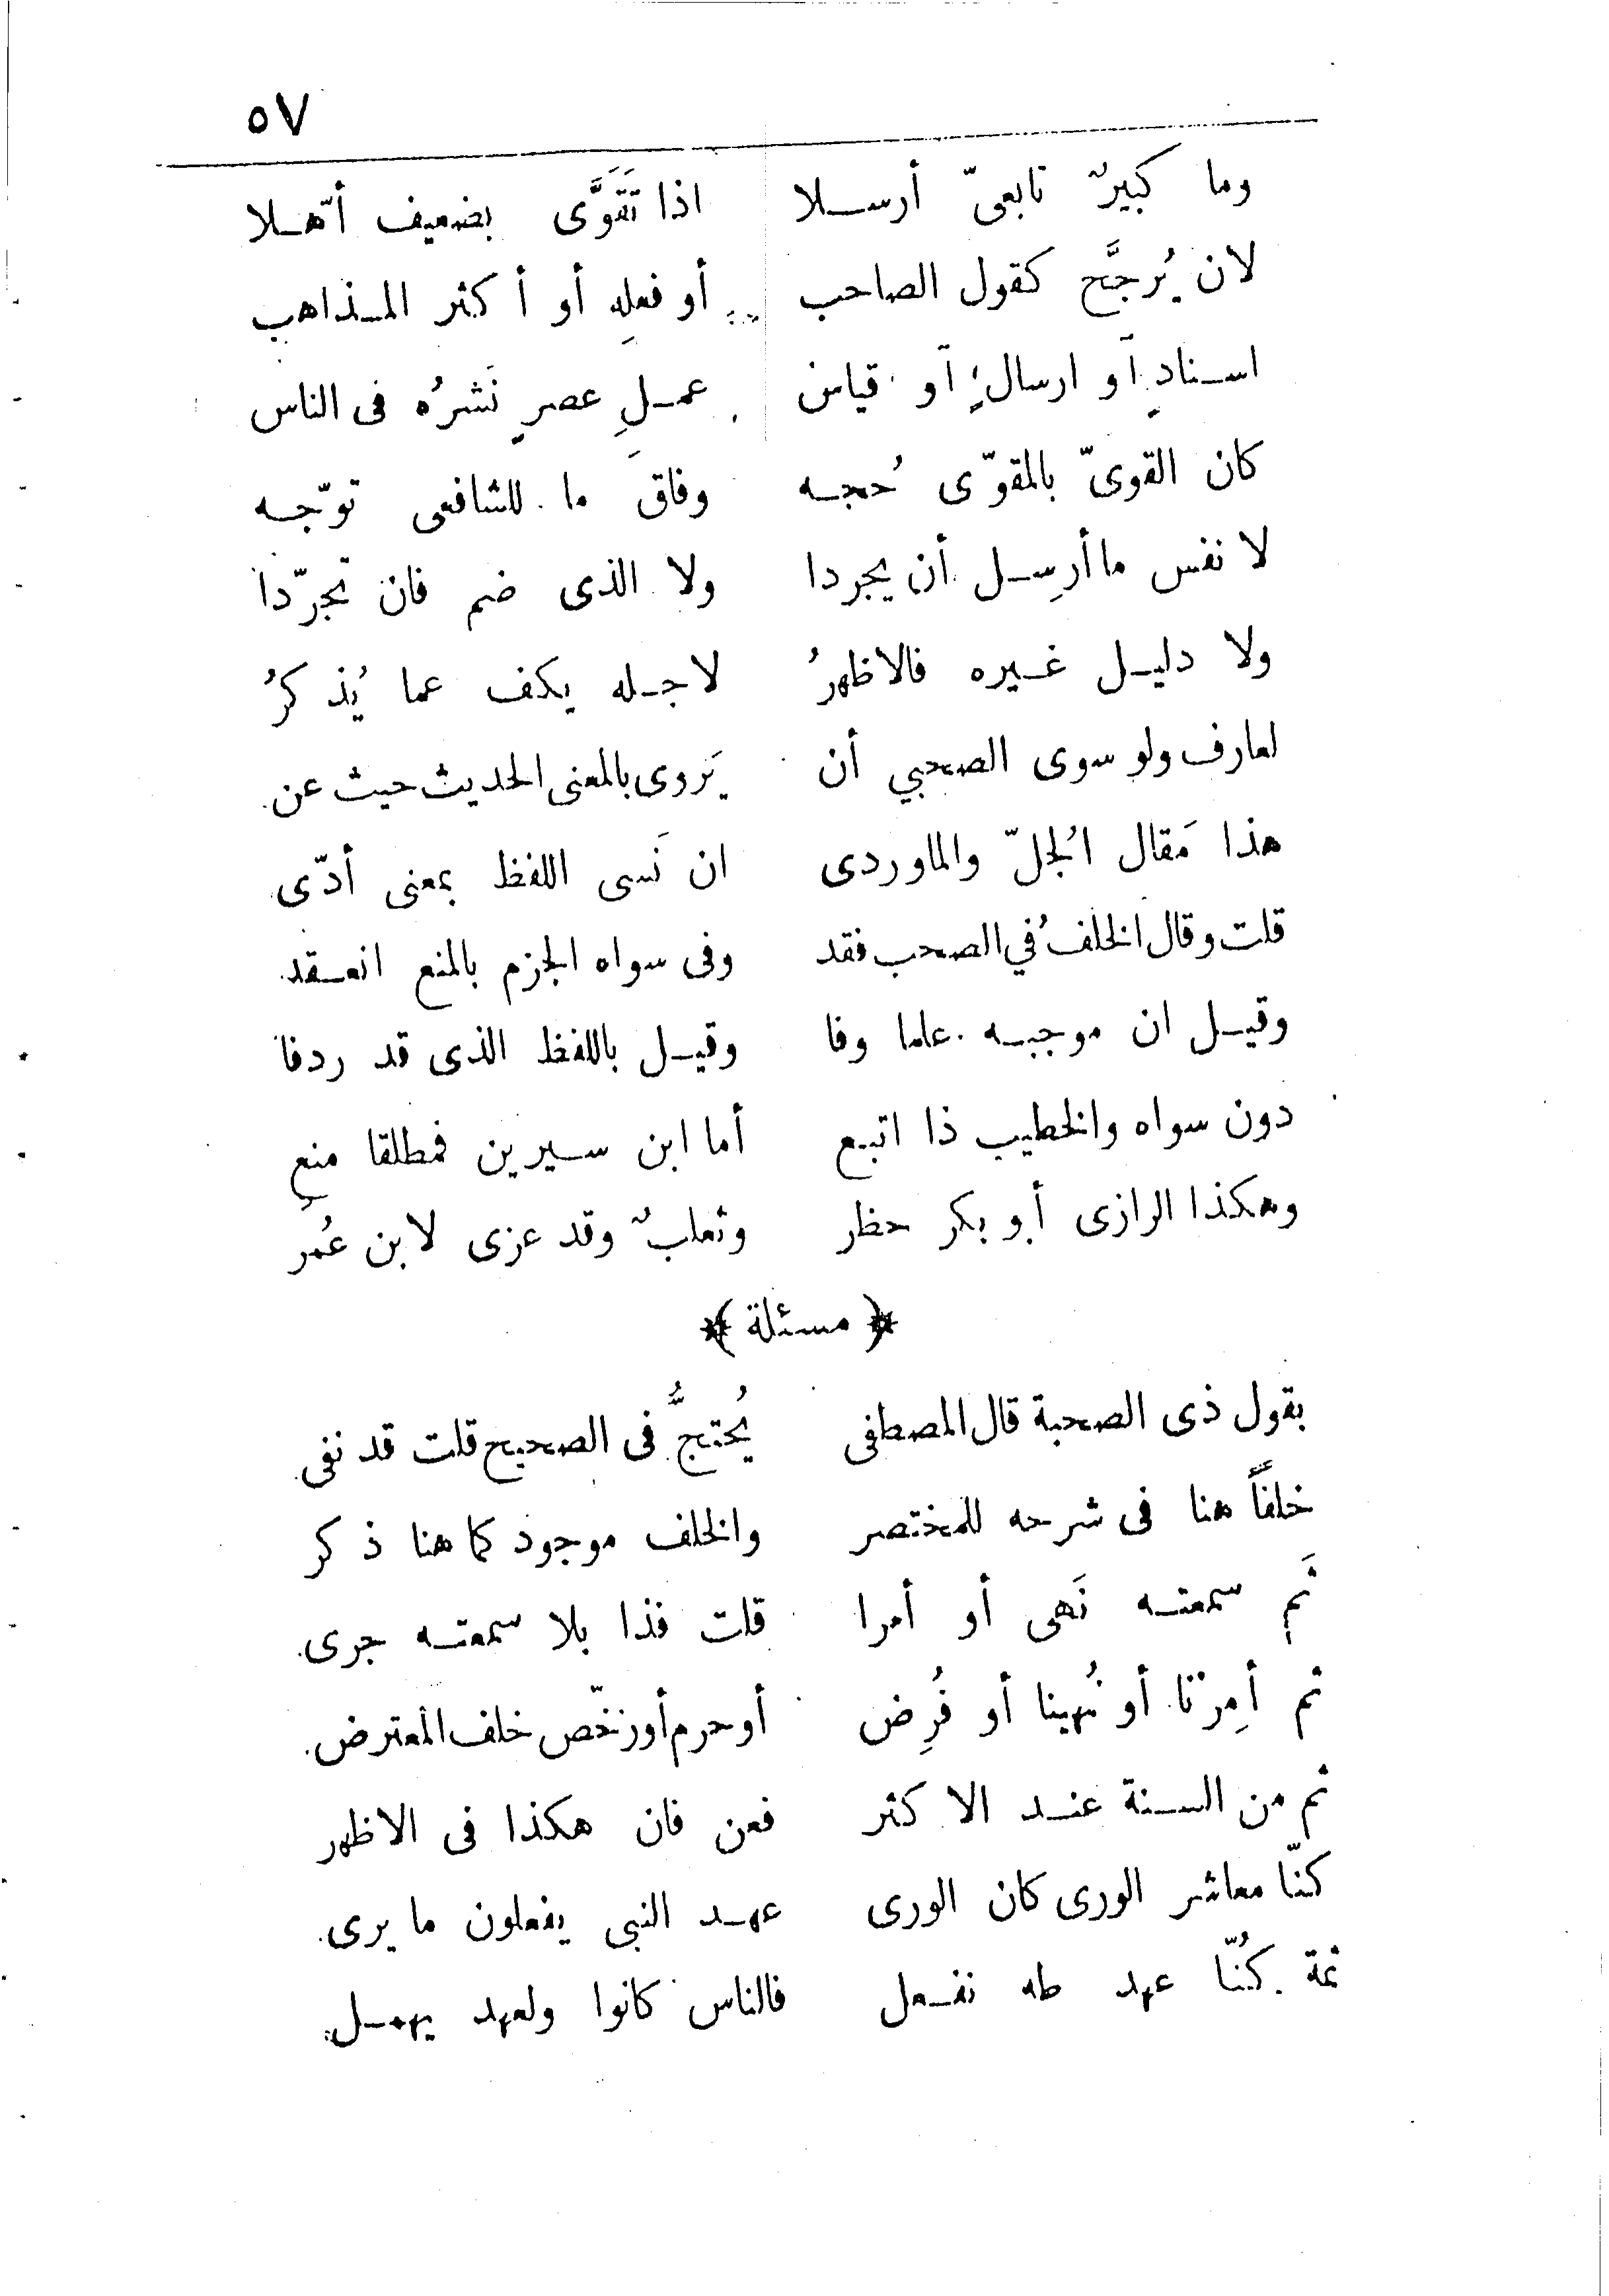 ٥٧
وما كبيرٌ تابعىّ أرسلا اذا تَقَوَّى بضعيف أهّلا
لان يُرجَّح كقول الصاحب أو فعلِه أو أكثر المذاهب
اسنادٍ أو ارسالٍ أو قياس عملِ عصرٍ نَشرُه فى الناس
كان القوىّ بالمقوّى حُجه وفاق ما للشافعى توّجه
لا نفس ما أرسِل أن يجردا ولا الذى ضم فان تجرّدا
ولا دليل غيره فالاظهرُ لاجله يكف عما يُذكرُ
لعارف ولو سوى الصحبي أن يَروى بالمعنى الحديث حيث عن
هذا مَقال الجُلّ والماوردى ان نَسى اللفظ بمعنى أدّى
قلت وقال الخلفُ في الصحب فقد وفى سواه الجزم بالمنع انعقد
وقيل ان موجبه علما وفا وقيل باللفظ الذى قد ردفا
دون سواه والخطيب ذا اتبع أما ابن سيرين فمطلقا منع
وهكذا الرازى أبو بكر حظر وثعلبٌ وقد عزى لابن عُمر
﴿ مسئلة ﴾
بقول ذى الصحبة قال المصطفى يُحتجُّ فى الصحيح قلت قد نفى
خلفاً هنا فى شرحه للمختصر والخلف موجود كما هنا ذكر
ثَم سمعته نَهى أو أمرا قلت فذا بلا سمعته جرى
ثم أمِرنا أو نُهينا أو فُرِض أو حرم أو رخّص خلف المعترض
ثم من السنة عند الاكثر فعن فان هكذا فى الاظهر
كنّا معاشر الورى كان الورى عهد النبى يفعلون ما يرى
ثمة كُنّا عهد طه نفعل فالناس كانوا ولعهد يهمل